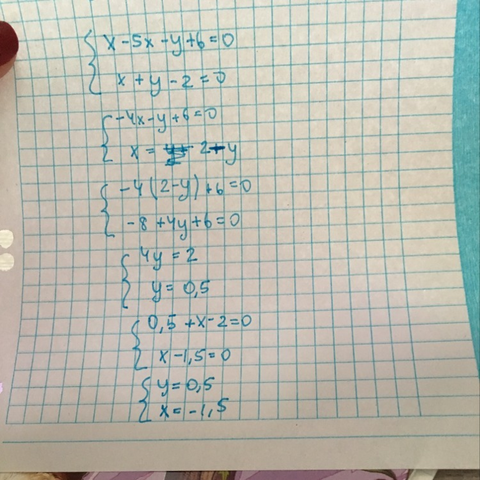 x-5x-y+6=0
x+y-2=0
-4x-y+6=0
x= 2-y
-4(2-y)+6=0
-8+4y+6=0
4y=2
y=0,5
0,5+x-2=0
x-1,5=0
y=0,5
x=-1,5